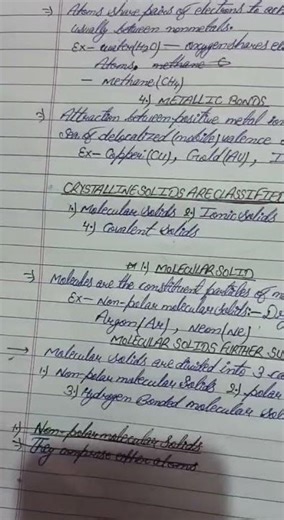 → Atoms share pairs of electrons to
usually between nonmetals.
Ex - water (H2O) - oxygen shares
Atoms.
- Methane (CH4)
4) METALLIC BONDS
→ Attraction between positive metal
sea of delocalized (mobile) valence
Ex - Copper (Cu), Gold (Au),
CRYSTALLINE SOLIDS ARE CLASSIFI
1) Molecular solids 2) Ionic solids
4) Covalent solids
1) MOLECULAR SOLID
→ Molecules are the constituent particles of
Ex - Non-polar molecular solids:-
Argon (Ar), Neon (Ne)
MOLECULAR SOLIDS FURTHER
→ Molecular solids are divided into 3
1) Non-polar molecular solids 2) polar
3) Hydrogen Bonded molecular
1) Non-polar molecular solids
→ They comprise other atoms